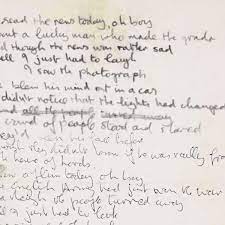 read the news today, oh boy
out a lucky man who made the grade
d though the news was rather sad
ell I just had to laugh
I saw the photograph
e blew his mind out in a car
didn't notice that the lights had changed
all the people turned away
crowd of people stood and stared
seen his face before
they didn't know if he was really from
house of Lords.
a film today oh boy
English Army had just won the war
people turned away
I just had to look